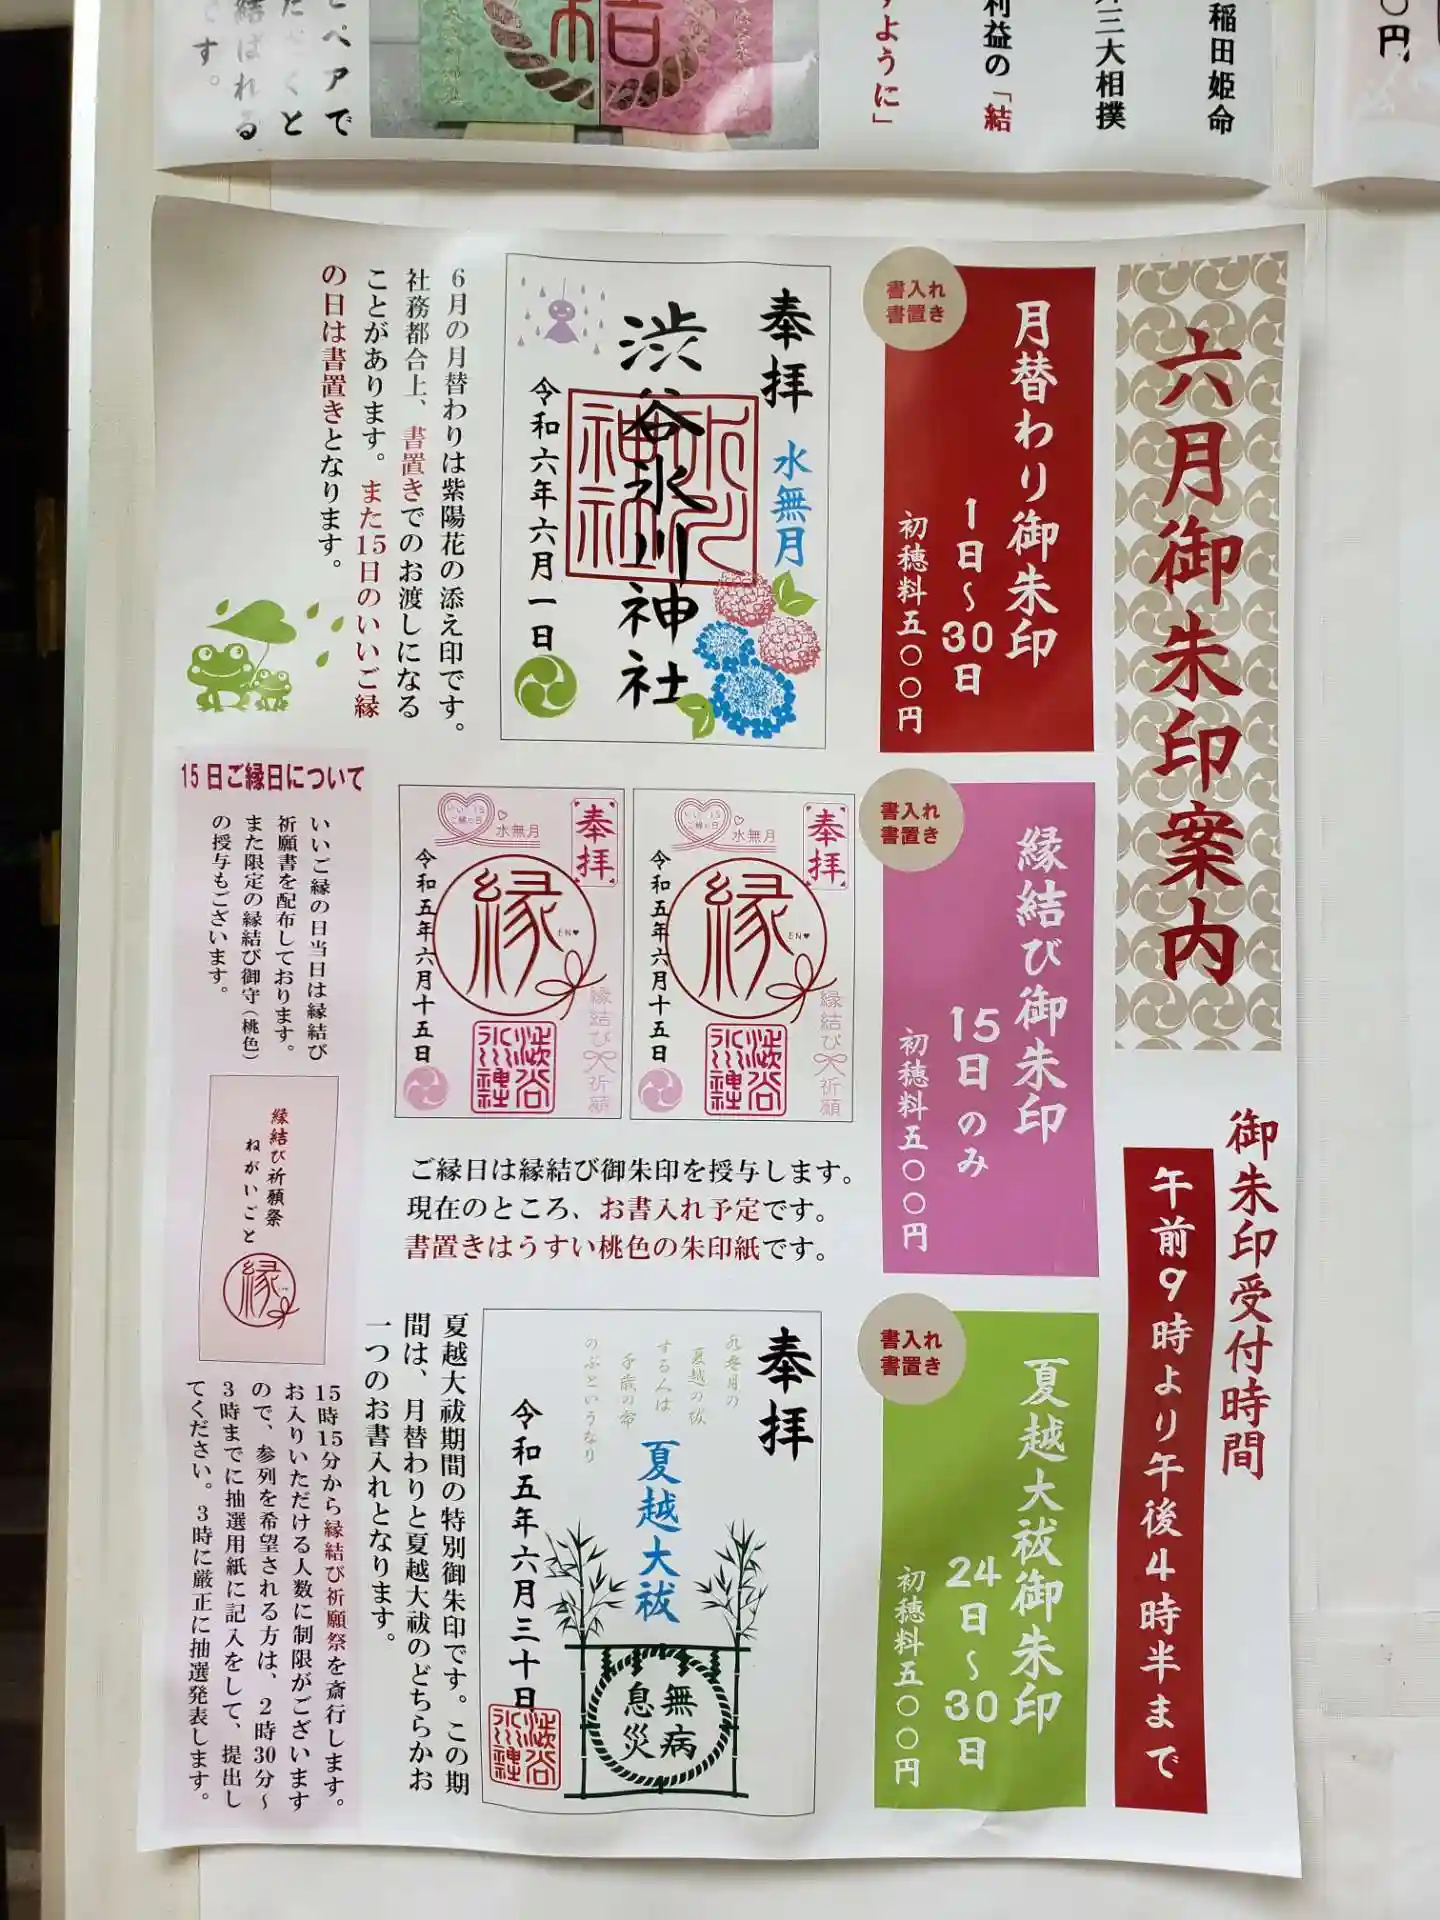 稲田姫命
三大相撲
利益の「結
すように」
ペアで
くと
結ばれる
です。
〇円
六月御朱印案内
御朱印受付時間
午前9時より午後4時半まで
書入れ
書置き
月替わり御朱印
1日〜30日
初穂料五〇〇円
奉拝
水無月
渋谷氷川神社
氷川
神社
令和六年六月一日
6月の月替わりは紫陽花の添え印です。
社務都合上、書置きでのお渡しになる
ことがあります。また15日のいいご縁
の日は書置きとなります。
書入れ
書置き
縁結び御朱印
15日のみ
初穂料五〇〇円
奉拝
いい15
ご縁の日
水無月
縁
EN♥
縁結び
祈願
令和五年六月十五日
渋谷
氷川神社
奉拝
いい15
ご縁の日
水無月
縁
EN♥
縁結び
祈願
令和五年六月十五日
渋谷
氷川神社
ご縁日は縁結び御朱印を授与します。
現在のところ、お書入れ予定です。
書置きはうすい桃色の朱印紙です。
15日ご縁日について
いいご縁の日当日は縁結び
祈願書を配布しております。
また限定の縁結び御守(桃色)
の授与もございます。
縁結び祈願祭
ねがいごと
縁
15時15分から縁結び祈願祭を斎行します。
お入りいただける人数に制限がございます
ので、参列を希望される方は、2時30分〜
3時までに抽選用紙に記入をして、提出し
てください。3時に厳正に抽選発表します。
書入れ
書置き
夏越大祓御朱印
24日〜30日
初穂料五〇〇円
奉拝
水無月の
夏越の祓
する人は
千歳の命
のぶというなり
夏越大祓
無病
息災
令和五年六月三十日
渋谷
氷川神社
夏越大祓期間の特別御朱印です。この期
間は、月替わりと夏越大祓のどちらかお
一つのお書入れとなります。